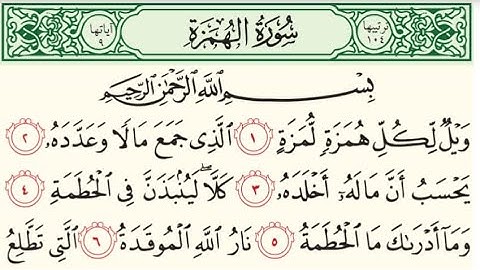 ترتيبها ١٠٤ سُورَةُ الهُمَزَةِ آياتها ٩
بِسْمِ اللَّهِ الرَّحْمَٰنِ الرَّحِيمِ
وَيْلٌ لِّكُلِّ هُمَزَةٍ لُّمَزَةٍ ١ ٱلَّذِى جَمَعَ مَالًا وَعَدَّدَهُۥ ٢
يَحْسَبُ أَنَّ مَالَهُۥٓ أَخْلَدَهُۥ ٣ كَلَّا ۖ لَيُنۢبَذَنَّ فِى ٱلْحُطَمَةِ ٤
وَمَآ أَدْرَىٰكَ مَا ٱلْحُطَمَةُ ٥ نَارُ ٱللَّهِ ٱلْمُوقَدَةُ ٦ ٱلَّتِى تَطَّلِعُ